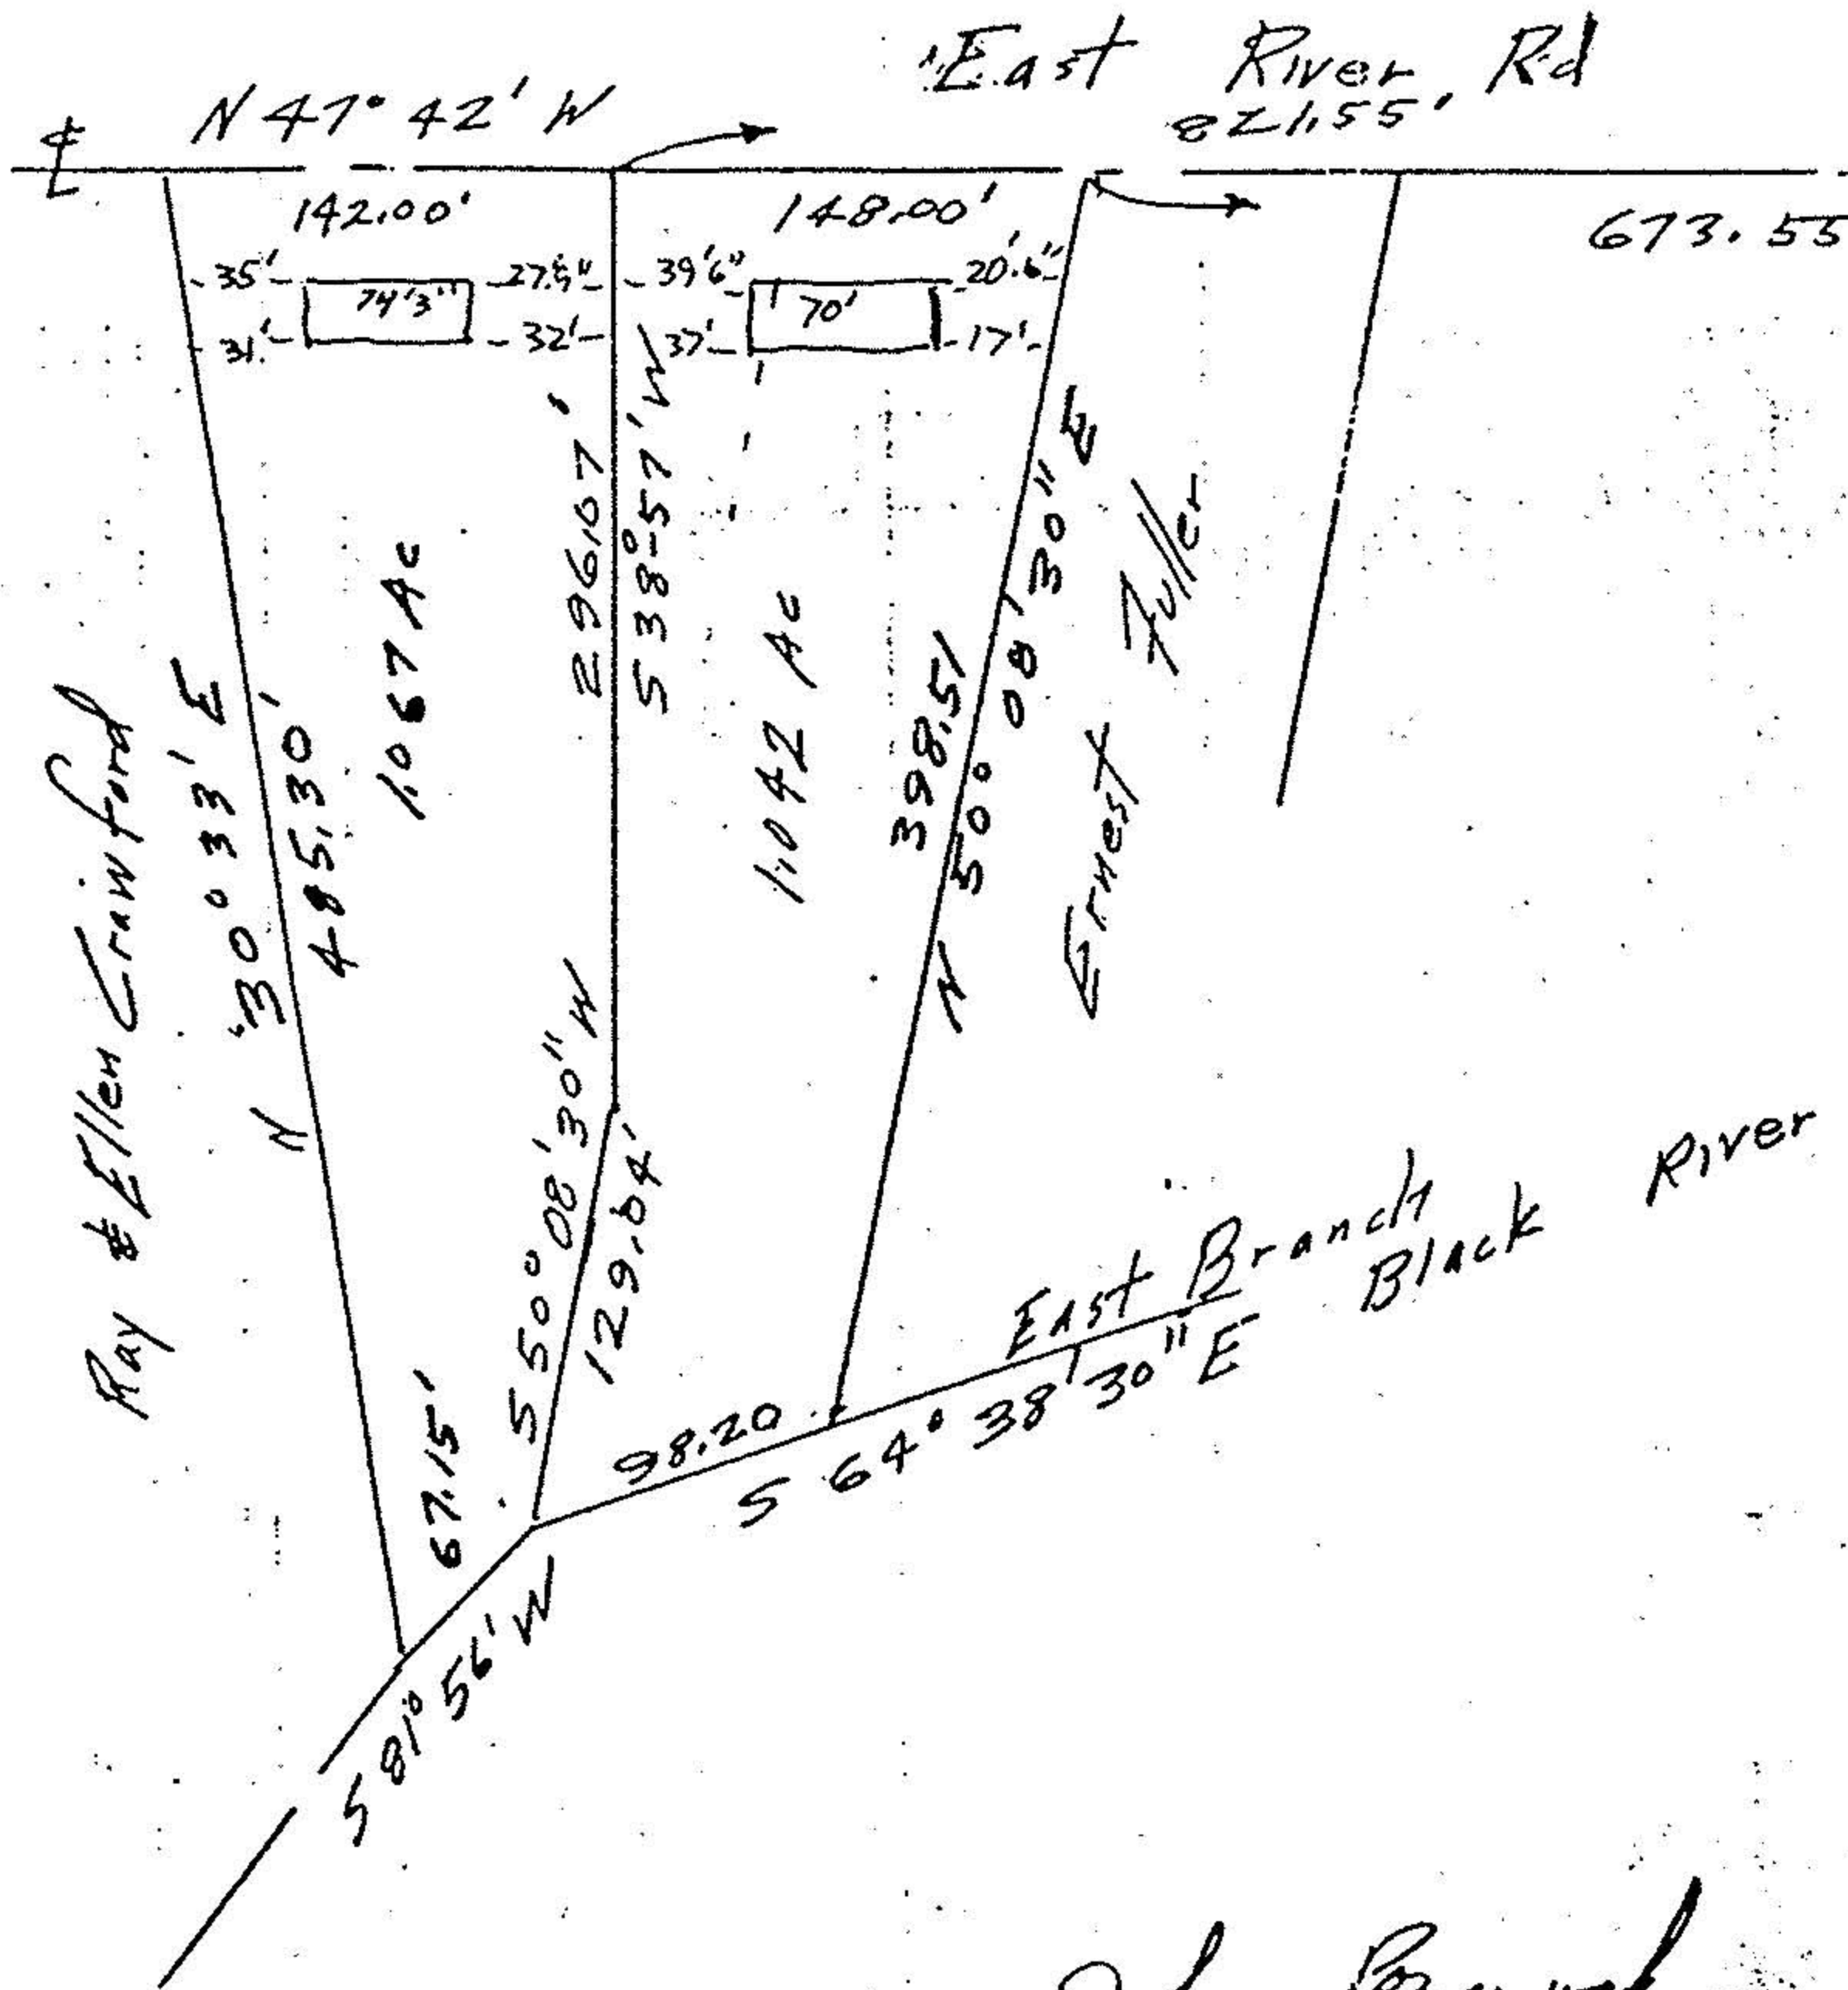 East River Rd
N 47° 42' W
821.55'
℄
142.00'
148.00'
673.55
35'
74'3"
39'6"
70'
20'.6"
31'
32'
37'
17'
Ray & Ellen Crawford
N 30° 33' E
485.30'
1.067 Ac
296.07'
S 38°-57' W
1.042 Ac
398.51
N 50° 08' 30" E
Ernest Fuller
S 50° 08' 30" W
129.04'
67.15'
S 81° 56' W
98.20
S 64° 38' 30" E
East Branch
Black River